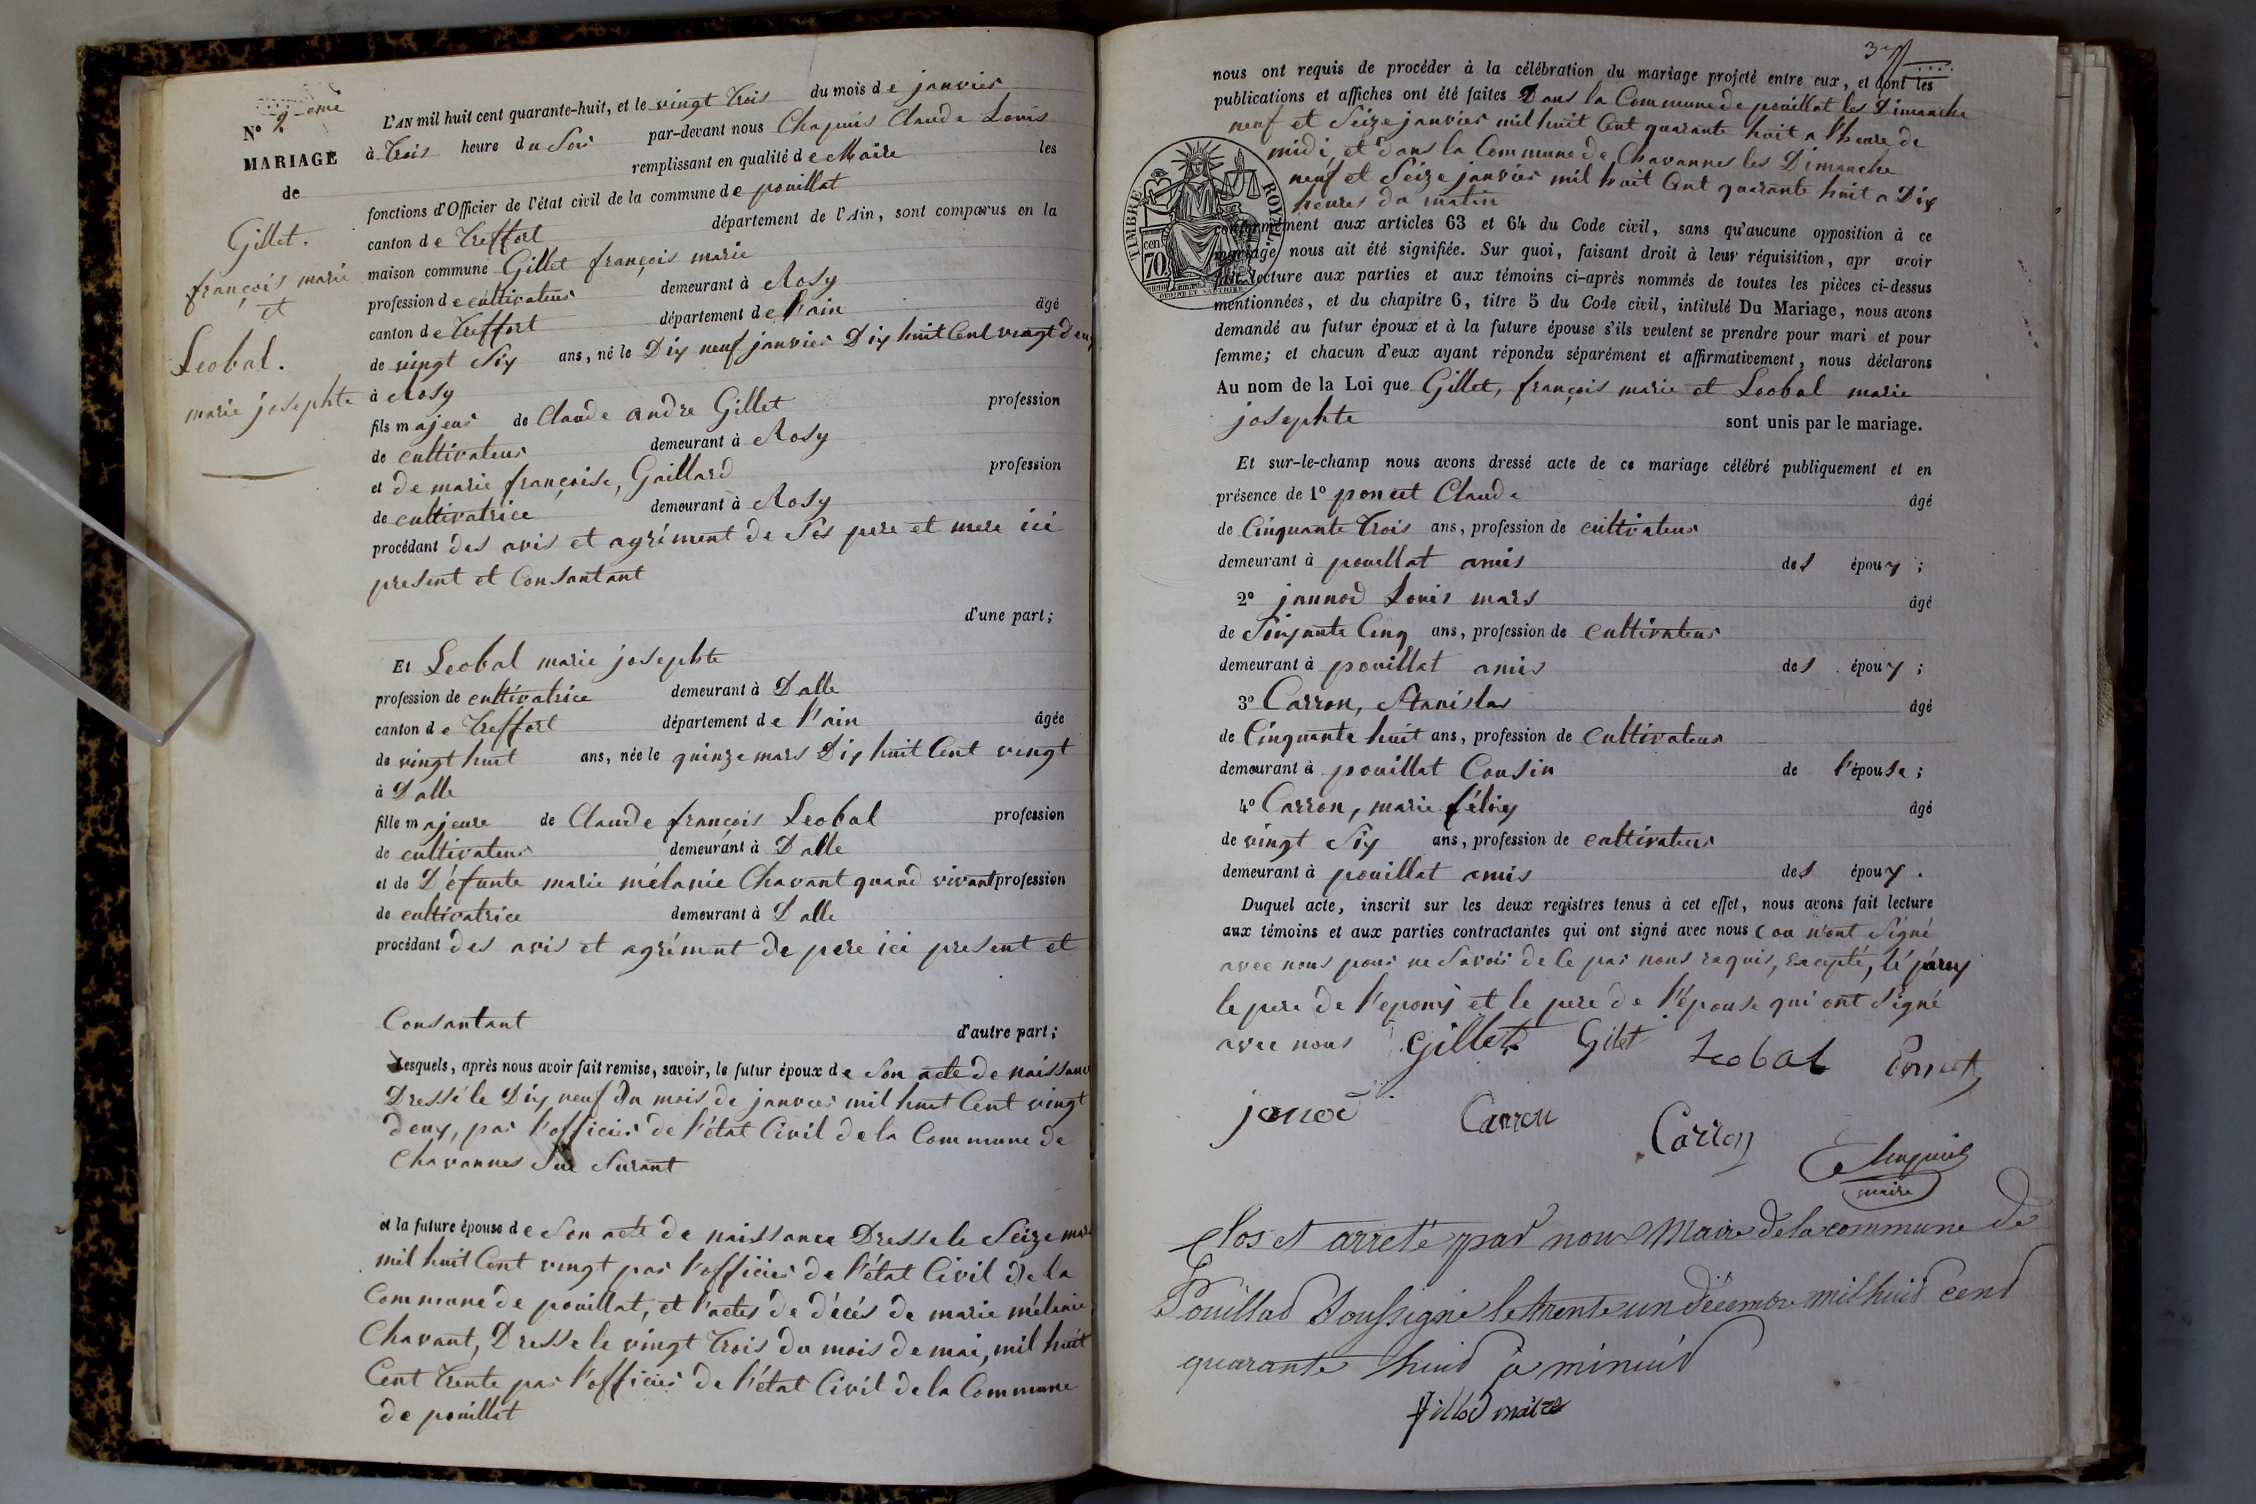 N° 2ème
MARIAGE
de
Gillet.
françois marie
et
Leobal.
marie josephte
L'AN mil huit cent quarante-huit, et le vingt trois du mois de janvier
à trois heure du Soir par-devant nous Chapuis Claude Louis
remplissant en qualité de Maire les
fonctions d'Officier de l'état civil de la commune de pouillat
canton de Treffort département de l'Ain, sont comparus en la
maison commune Gillet françois marie
profession de cultivateur demeurant à Rosy
canton de Treffort département de l'ain âgé
de vingt Six ans, né le Dix neuf janvier Dix huit Cent vingt deux
à Rosy
fils majeur de Claude andre Gillet profession
de cultivateur demeurant à Rosy
et de marie françoise, Gaillard profession
de cultivatrice demeurant à Rosy
procédant des avis et agrément de Ses pere et mere ici
present et Consantant
d'une part;
Et Leobal marie josephte
profession de cultivatrice demeurant à Dalle
canton de Treffort département de l'ain âgée
de vingt huit ans, née le quinze mars Dix huit Cent vingt
à Dalle
fille majeure de Claude françois Leobal profession
de cultivateur demeurant à Dalle
et de Défunte marie mélanie Chavant quand vivant profession
de cultivatrice demeurant à Dalle
procédant des avis et agrément de pere ici present et
Consantant
d'autre part;
Lesquels, après nous avoir fait remise, savoir, le futur époux de Son acte de naissance
Dressé le Dix neuf du mois de janvier mil huit Cent vingt
deux, par l'officier de l'état Civil de la Commune de
Chavannes Sur Surant
et la future épouse de Son acte de naissance Dresse le Seize mars
mil huit Cent vingt par l'officier de l'état Civil de la
Commune de pouillat, et l'actes de décés de marie mélanie
Chavant, Dresse le vingt trois du mois de mai, mil huit
Cent trente par l'officier de l'état Civil de la Commune
de pouillat
nous ont requis de procéder à la célébration du mariage projeté entre eux, et dont les
publications et affiches ont été faites Dans la Commune de pouillat les Dimanche
neuf et Seize janvier mil huit Cent quarante huit a l'heure de
midi et dans la Commune de Chavannes les Dimanche
neuf et Seize janvier mil huit Cent quarante huit a Dix
heures du matin
TIMBRE ROYAL
cen
70
conformément aux articles 63 et 64 du Code civil, sans qu'aucune opposition à ce
mariage nous ait été signifiée. Sur quoi, faisant droit à leur réquisition, apr avoir
fait lecture aux parties et aux témoins ci-après nommés de toutes les pièces ci-dessus
mentionnées, et du chapitre 6, titre 5 du Code civil, intitulé Du Mariage, nous avons
demandé au futur époux et à la future épouse s'ils veulent se prendre pour mari et pour
femme; et chacun d'eux ayant répondu séparément et affirmativement, nous déclarons
Au nom de la Loi que Gillet, françois marie et Leobal marie
josephte sont unis par le mariage.
Et sur-le-champ nous avons dressé acte de ce mariage célébré publiquement et en
présence de 1° poncet Claude âgé
de Cinquante Trois ans, profession de cultivateur
demeurant à pouillat amis des époux ;
2° jannod Louis mars âgé
de Soixante Cinq ans, profession de cultivateur
demeurant à pouillat amis des époux ;
3° Carron, Stanislas âgé
de Cinquante huit ans, profession de cultivateur
demeurant à pouillat Cousin de l'épouse ;
4° Carron, marie félix âgé
de vingt Six ans, profession de cultivateur
demeurant à pouillat amis des époux .
Duquel acte, inscrit sur les deux registres tenus à cet effet, nous avons fait lecture
aux témoins et aux parties contractantes qui ont signé avec nous ou n'ont Signé
avec nous pour ne Savoir de Ce par nous requis, excepté, lé
le pere de l'epoux et le pere de l'épouse qui ont Signé
avec nous Gillet Gilet Leobal Poncet
janod Carron Carron Chapuis
maire
Clos et arreté par nous Maire de la commune de
Pouillad Soussigné le trente un décembre mil huid cend
quarante huid à minuid
maire